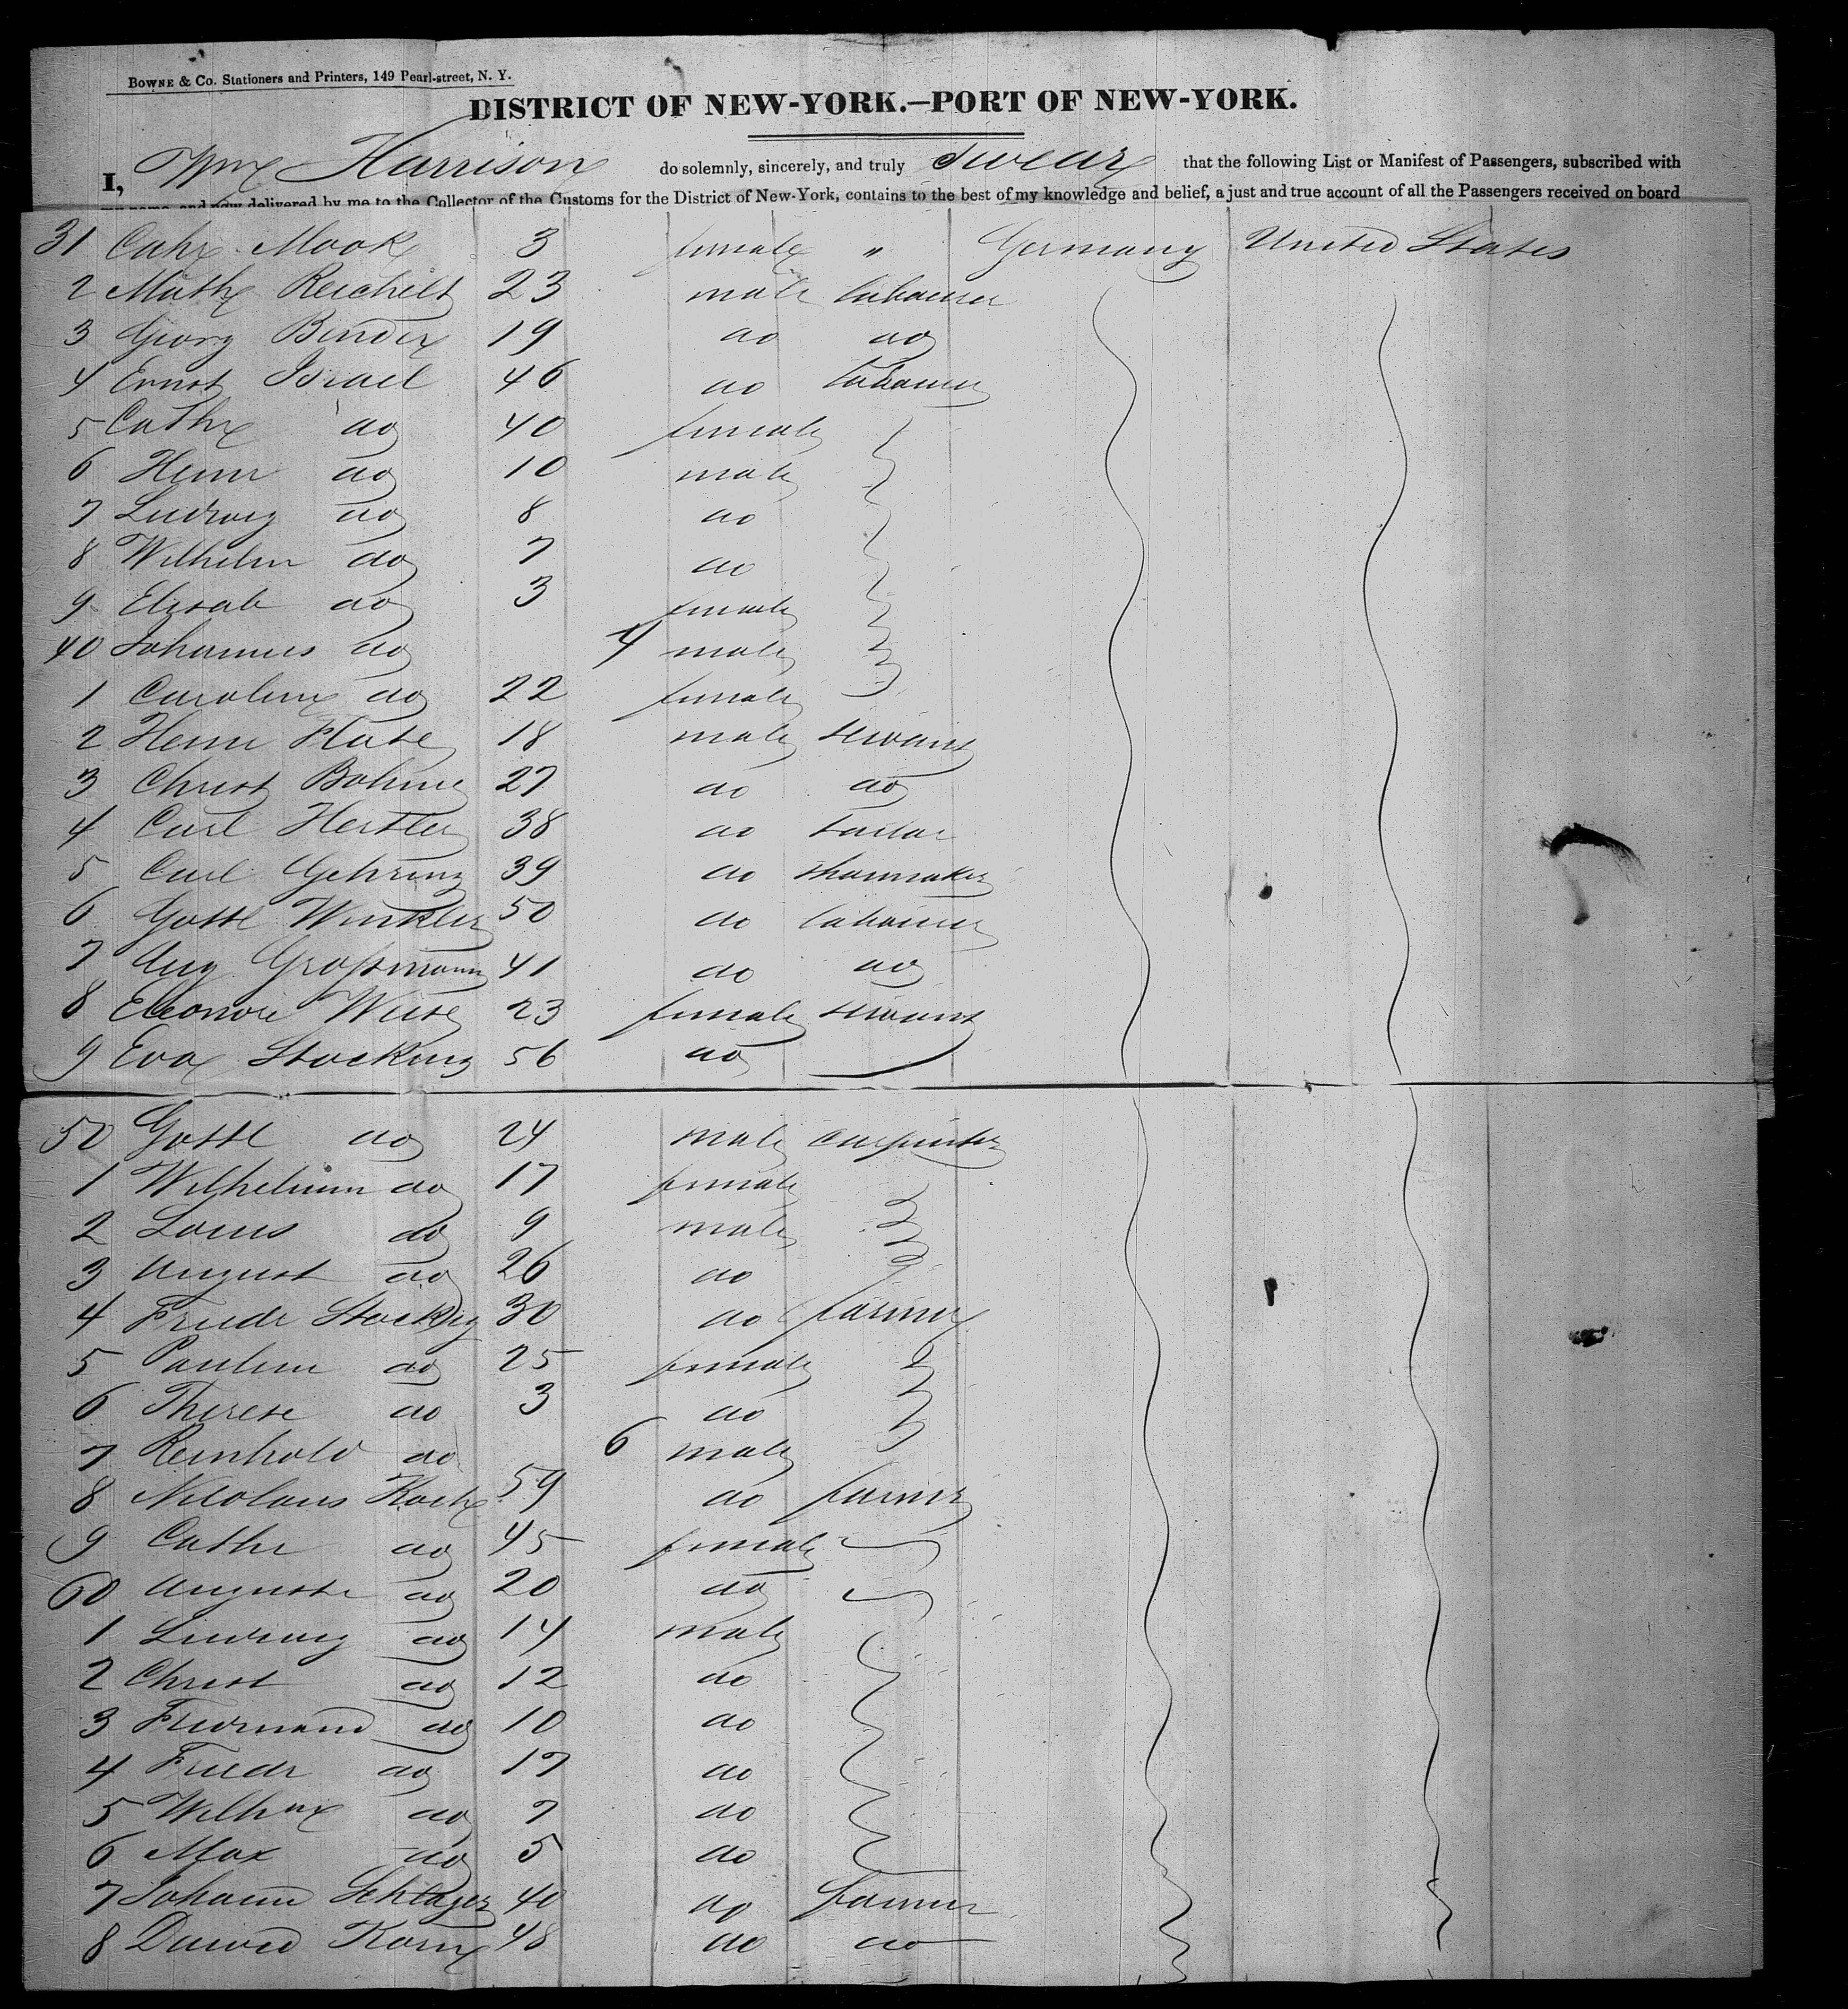 BOWNE & CO. Stationers and Printers, 149 Pearl-street, N. Y.
DISTRICT OF NEW-YORK.—PORT OF NEW-YORK.
I, Wm Harrison do solemnly, sincerely, and truly Swear that the following List or Manifest of Passengers, subscribed with
my name, and now delivered by me to the Collector of the Customs for the District of New-York, contains to the best of my knowledge and belief, a just and true account of all the Passengers received on board
31 Cath Mook 3 female " Germany United States
2 Math Reichilt 23 male labourer
3 Georg Binder 19 do do
4 Ernst Israel 46 do labourer
5 Cathe do 40 female
6 Heinr do 10 male
7 Ludwig do 8 do
8 Wilhelm do 7 do
9 Elisab do 3 female
40 Johannes do 4 male
1 Caroline do 22 female
2 Heinr Plate 18 male servant
3 Christ Bohme 27 do do
4 Carl Hertler 38 do tailor
5 Carl Gehring 39 do shoemaker
6 Gottl Winkler 50 do labourer
7 Aug Großmann 41 do do
8 Eleonore Weise 23 female servant
9 Eva Stocking 56 do
50 Gottl do 24 male carpenter
1 Wilhelmin do 17 female
2 Louis do 9 male
3 August do 26 do
4 Friedr Stockig 30 do farmer
5 Paulin do 25 female
6 Therese do 3 do
7 Reinhold do 6 male
8 Nicolaus Koch 59 do farmer
9 Cathe do 45 female
60 Auguste do 20 do
1 Ludwig do 14 male
2 Christ do 12 do
3 Fridinand do 10 do
4 Friedr do 17 do
5 Wilhm do 7 do
6 Max do 5 do
7 Johann Schlager 40 do farmer
8 David Korn 48 do do